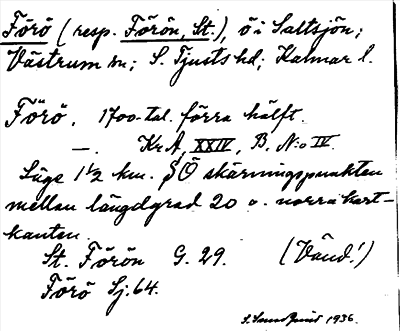 Förö (resp. Förön, St.), ö i Saltsjön;
Västrum sn; S. Tjusts hd; Kalmar l.
Förö. 1700-tal. förra hälft.
—. KrA, XXIV, B, N:o IV.
Läge 1 1/2 km. SÖ skärningspunkten
mellan längdgrad 20 o. norra kart-
kanten.
St. Förön G. 29. (Vänd!)
Förö Sj. 64.
1936.